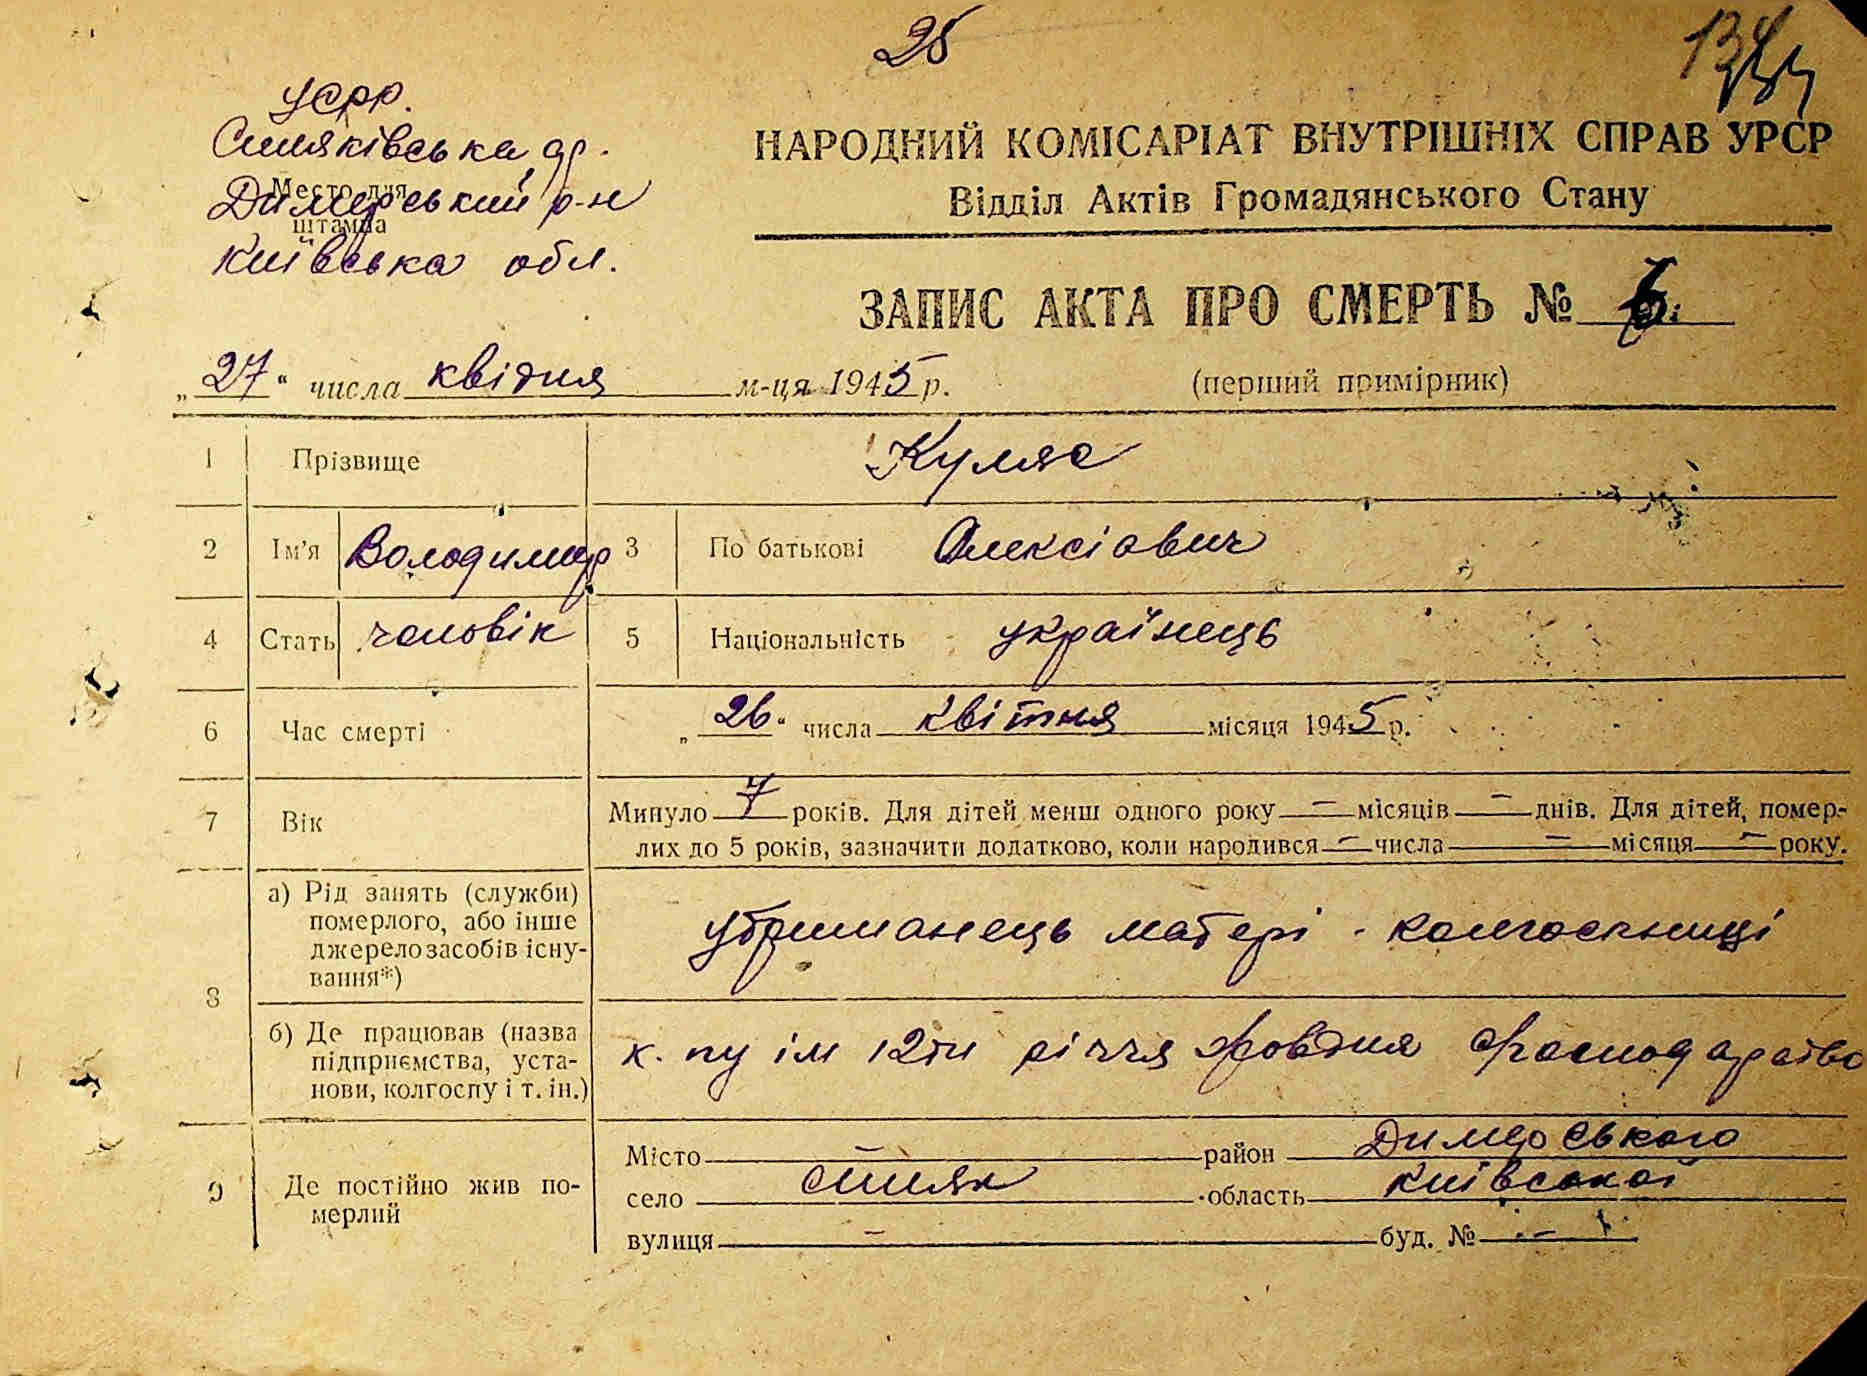 28
УСРР.
Синяківська др.
Место для
Димерський р-н
штампа
Київська обл.
НАРОДНИЙ КОМІСАРІАТ ВНУТРІШНІХ СПРАВ УРСР
Відділ Актів Громадянського Стану
ЗАПИС АКТА ПРО СМЕРТЬ № 6
„27" числа квітня м-ця 1945 р. (перший примірник)
1 Прізвище Куляс
2 Ім'я Володимир 3 По батькові Олексіович
4 Стать чоловік 5 Національність українець
6 Час смерті „26" числа квітня місяця 1945 р.
7 Вік Минуло 7 років. Для дітей менш одного року — місяців — днів. Для дітей, помер-
лих до 5 років, зазначити додатково, коли народився — числа — місяця — року.
8 а) Рід занять (служби)
померлого, або інше
джерело засобів існу-
вання*)
утриманець матері - колгоспниці
б) Де працював (назва
підприємства, уста-
нови, колгоспу і т. ін.)
к. пу ім 12ти річчя Жовтня
9 Де постійно жив по-
мерлий
Місто — район Димерського
село Синяк область Київської
вулиця — буд. № —